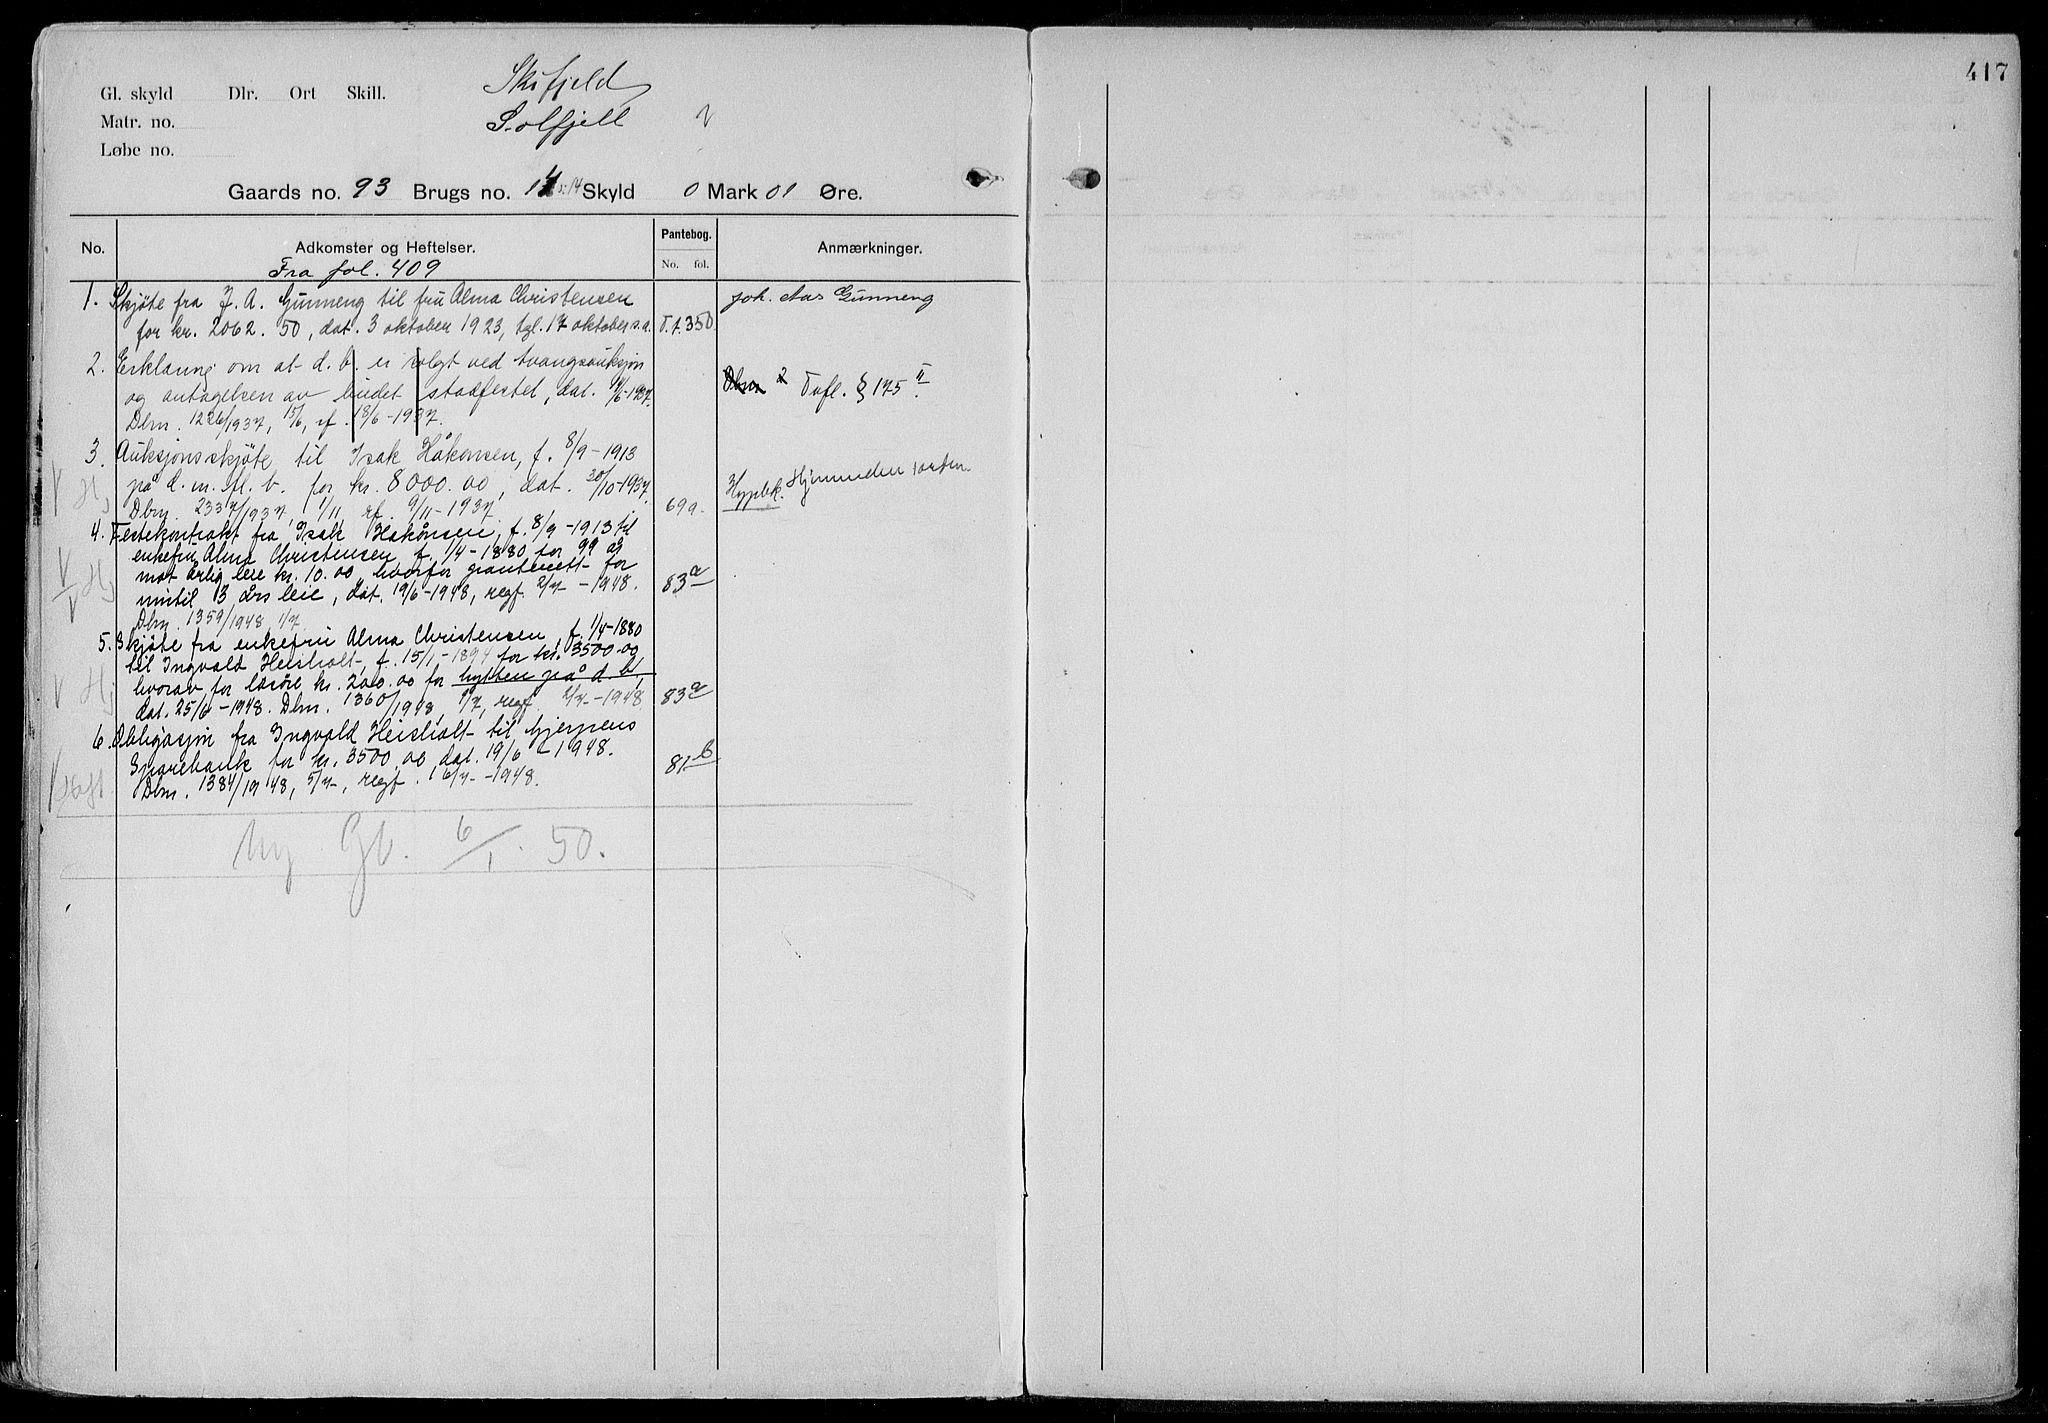 417
Skifjeld
Gl. skyld Dlr. Ort Skill.
Solfjell
Matr. no.
Løbe no.
Gaards no. 93 Brugs no. 14 Skyld 0 Mark 01 Øre.
No. Adkomster og Heftelser. Pantebog. No. fol. Anmærkninger.
Fra fol. 409
1. Skjøte fra J. A. Gunneng til fru Alma Christensen Joh. Aas Gunneng
for kr. 2062.50, dat. 3 oktober 1923, tgl. 17 oktober s.a. 350
2. Erklæring om at d. b. er solgt ved tvangsauksjon
og antagelsen av budet stadfestet, dat. 14/6-1937. Tvfl. § 175 II
Dbm. 1226/1937, 15/6, rf. 18/6-1937.
3. Auksjonsskjøte til Isak Håkonsen, f. 8/9-1913
på d. m. fl. b. for kr. 8000.00, dat. 30/10-1937. Hypbk.
Dbm. 2337/1937, 1/11, rf. 9/11-1937 69a.
4. Festekontrakt fra Isak Håkonsen, f. 8/9-1913 til
enkefru Alma Christensen f. 1/4-1880 for 99 år
mot årlig leie kr. 10.00 hvorfor panterett for
inntil 3 års leie, dat. 19/6-1948, regf. 2/7-1948. 83a
Dbm. 1359/1948, 1/7.
5. Skjøte fra enkefru Alma Christensen, f. 1/4-1880
til Ingvald Heisholt, f. 15/1-1894 for kr. 3500.00
hvorav for løsøre kr. 200.00 for hytten på d. b.,
dat. 25/6-1948. Dbm. 1360/1948, 1/7, regf. 2/7-1948 83a
6. Obligasjon fra Ingvald Heisholt til Gjerpens
Sparebank for kr. 3500.00 dat. 19/6-1948. 81b
Dbm. 1384/1948, 5/7, regf. 16/7-1948.
Ny Gb. 6/1. 50.